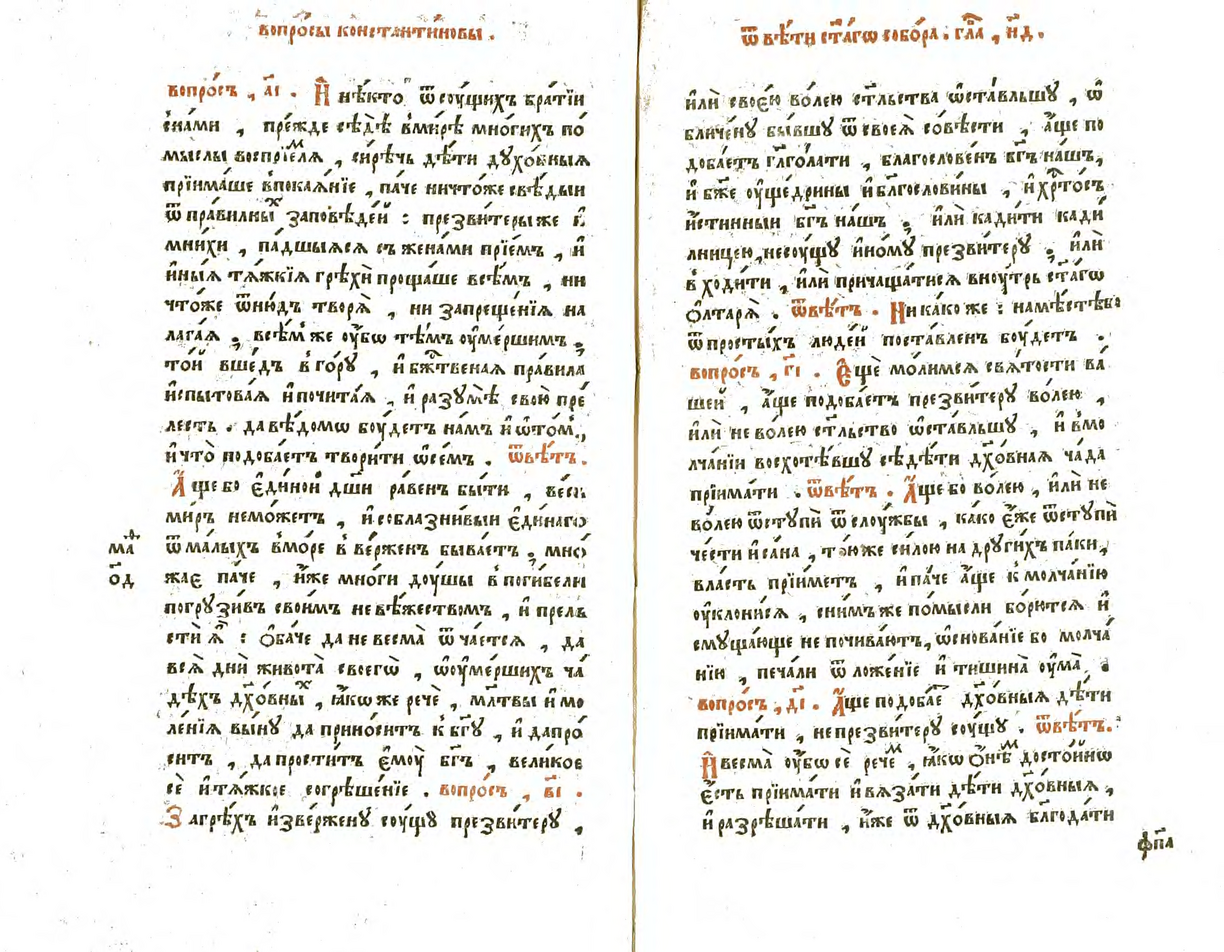 вопро́сы конста́нти́новы .
вопро́съ , а҃і . И҆ нѣ́кто ѿ сѹ́щихъ бра́тїи
с̾на́ми , пре́жде сѣ́дѣ вми́рѣ мно́гихъ по
мы́слы воспрїе́млѧ , си́рѣчь дѣ́ти дꙋхо́вныѧ
прїима́ше впокаѧ́нїе , па́че ничто́же свѣ́дыи
ѿ пра́вилныⷯ за́повѣдей : презви́терыже и҆
мни́хи , па́дшыѧсѧ съ жена́ми прїе́мъ , и҆
и҆ны́ѧ тѧ́жкїѧ грѣхѝ проща́ше всѣ́мъ , ни
что́же ѿню́дъ творѧ̀ , ни запреще́нїѧ на
лага́ѧ , всѣ́м же ѹ҆́бѡ тѣ́мъ ѹ҆ме́ршимъ ,
то́й вше́дъ в го́рꙋ , и҆ бжⷭ҇твенаѧ пра́вила
и҆спы́товаѧ и҆ почита́ѧ , и҆ разꙋмѣ̀ свою̀ пре
лесть . да вѣ́домѡ бѹ́детъ на́мъ и҆ ѡ҆то́м ,
и҆ что̀ подоба́етъ твори́ти ѡ҆се́мъ . ѿвѣ́тъ .
А҆́ще бо є҆ди́ной дш҃и ра́венъ бы́ти , ве́сь
ми́ръ немо́жетъ , и҆ соблазни́выи є҆ди́наго
ѿ ма́лыхъ вмо́ре в ве́рженъ быва́етъ , мно
жае па́че , и҆́же мно́ги дѹ́шы в поги́бели
погрꙋзи́въ свои́мъ невѣ́жествомъ , и҆ преле
сти ѧ҆̀ : Ѻ҆ба́че да не весма̀ ѿчае́тсѧ , да
всѧ̀ дни̑ живота̀ своегѡ̀ , ѡ҆ѹ҆ме́ршихъ ча́
дѣхъ дх҃о́вныⷯ , ꙗ҆́коже речѐ , мл҃твы и҆ мо
ле́нїѧ вы́нꙋ да прино́ситъ к бг҃ꙋ , и҆ да про́
ситъ , да прости́тъ є҆мѹ̀ бг҃ъ , вели́кое
сѐ и҆ тѧ́жкое согрѣше́нїе . вопро́съ , в҃і .
За грѣ́хъ и҆зве́рженꙋ сѹ́щꙋ презви́терꙋ ,
маⷴ
о҃д
ѿвѣ́ти ст҃а́гѡ собо́ра . гла , н҃д .
и҆лѝ свое́ю во́лею ст҃льства ѡ҆ста́вльшꙋ , ѡ҆
бличе́нꙋ бы́вшꙋ ѿ своеѧ̀ со́вѣсти , а҆́ще по
доба́етъ гл҃го́лати , благослове́нъ бг҃ъ на́шъ ,
и҆ бж҃е ѹ҆ще́дрины и҆ бл҃гослови́ны , и҆ хрⷭ҇то́съ
и҆́стинныи бг҃ъ на́шъ , и҆лѝ кади́ти кади́
лницею , несѹ́щꙋ и҆но́мꙋ презви́терꙋ , и҆лѝ
в ходи́ти , и҆лѝ причаща́тисѧ внѹ́трь ст҃а́гѡ
ѻ҆лтарѧ̀ . ѿвѣ́тъ . Ника́коже : на мѣ́стѣво
ѿ просты́хъ люде́й поста́вленъ бѹ́детъ .
вопро́съ , г҃і . Е҆щѐ мо́лимсѧ свѧ́тости ва́
шей , а҆́ще подоба́етъ презви́терꙋ во́лею ,
и҆лѝ не во́лею ст҃льство ѡ҆ста́вльшꙋ , и҆ вмо
лча́нїи восхотѣ́вшꙋ сѣдѣ́ти дх҃о́внаѧ ча́да
прїима́ти . ѿвѣ́тъ . А҆́ще бо во́лею , и҆лѝ не
во́лею ѿстꙋпѝ ѿ слѹ́жбы , ка́ко є҆́же ѿстꙋпѝ
че́сти и҆ са́на , то́юже си́лою на дрꙋги́хъ па́ки ,
вла́сть прїи́метъ , и҆ па́че а҆́ще к молча́нїю
ѹ҆клони́сѧ , сни́мъ же по́мысли бо́рютсѧ и҆
смꙋща́юще не почива́ютъ , ѡ҆снова́нїе бо молча́
нїю , печа́ли ѿ ложе́нїе и҆ тишина̀ ѹ҆ма̀ .
вопро́съ , д҃і . А҆́ще подоба́еⷮ дх҃о́вныѧ дѣ́ти
прїима́ти , непрезви́терꙋ сѹ́щꙋ . ѿвѣ́тъ .
И҆ весма̀ ѹ҆́бѡ сѐ рече́ⷨ , ꙗ҆́кѡ ѻ҆нѣ́ⷨ досто́йнѡ
є҆́сть прїима́ти и҆ вѧза́ти дѣ́ти дх҃о́вныѧ ,
и҆ разрѣша́ти , и҆́же ѿ дх҃о́вныѧ бл҃года́ти
ф҃па